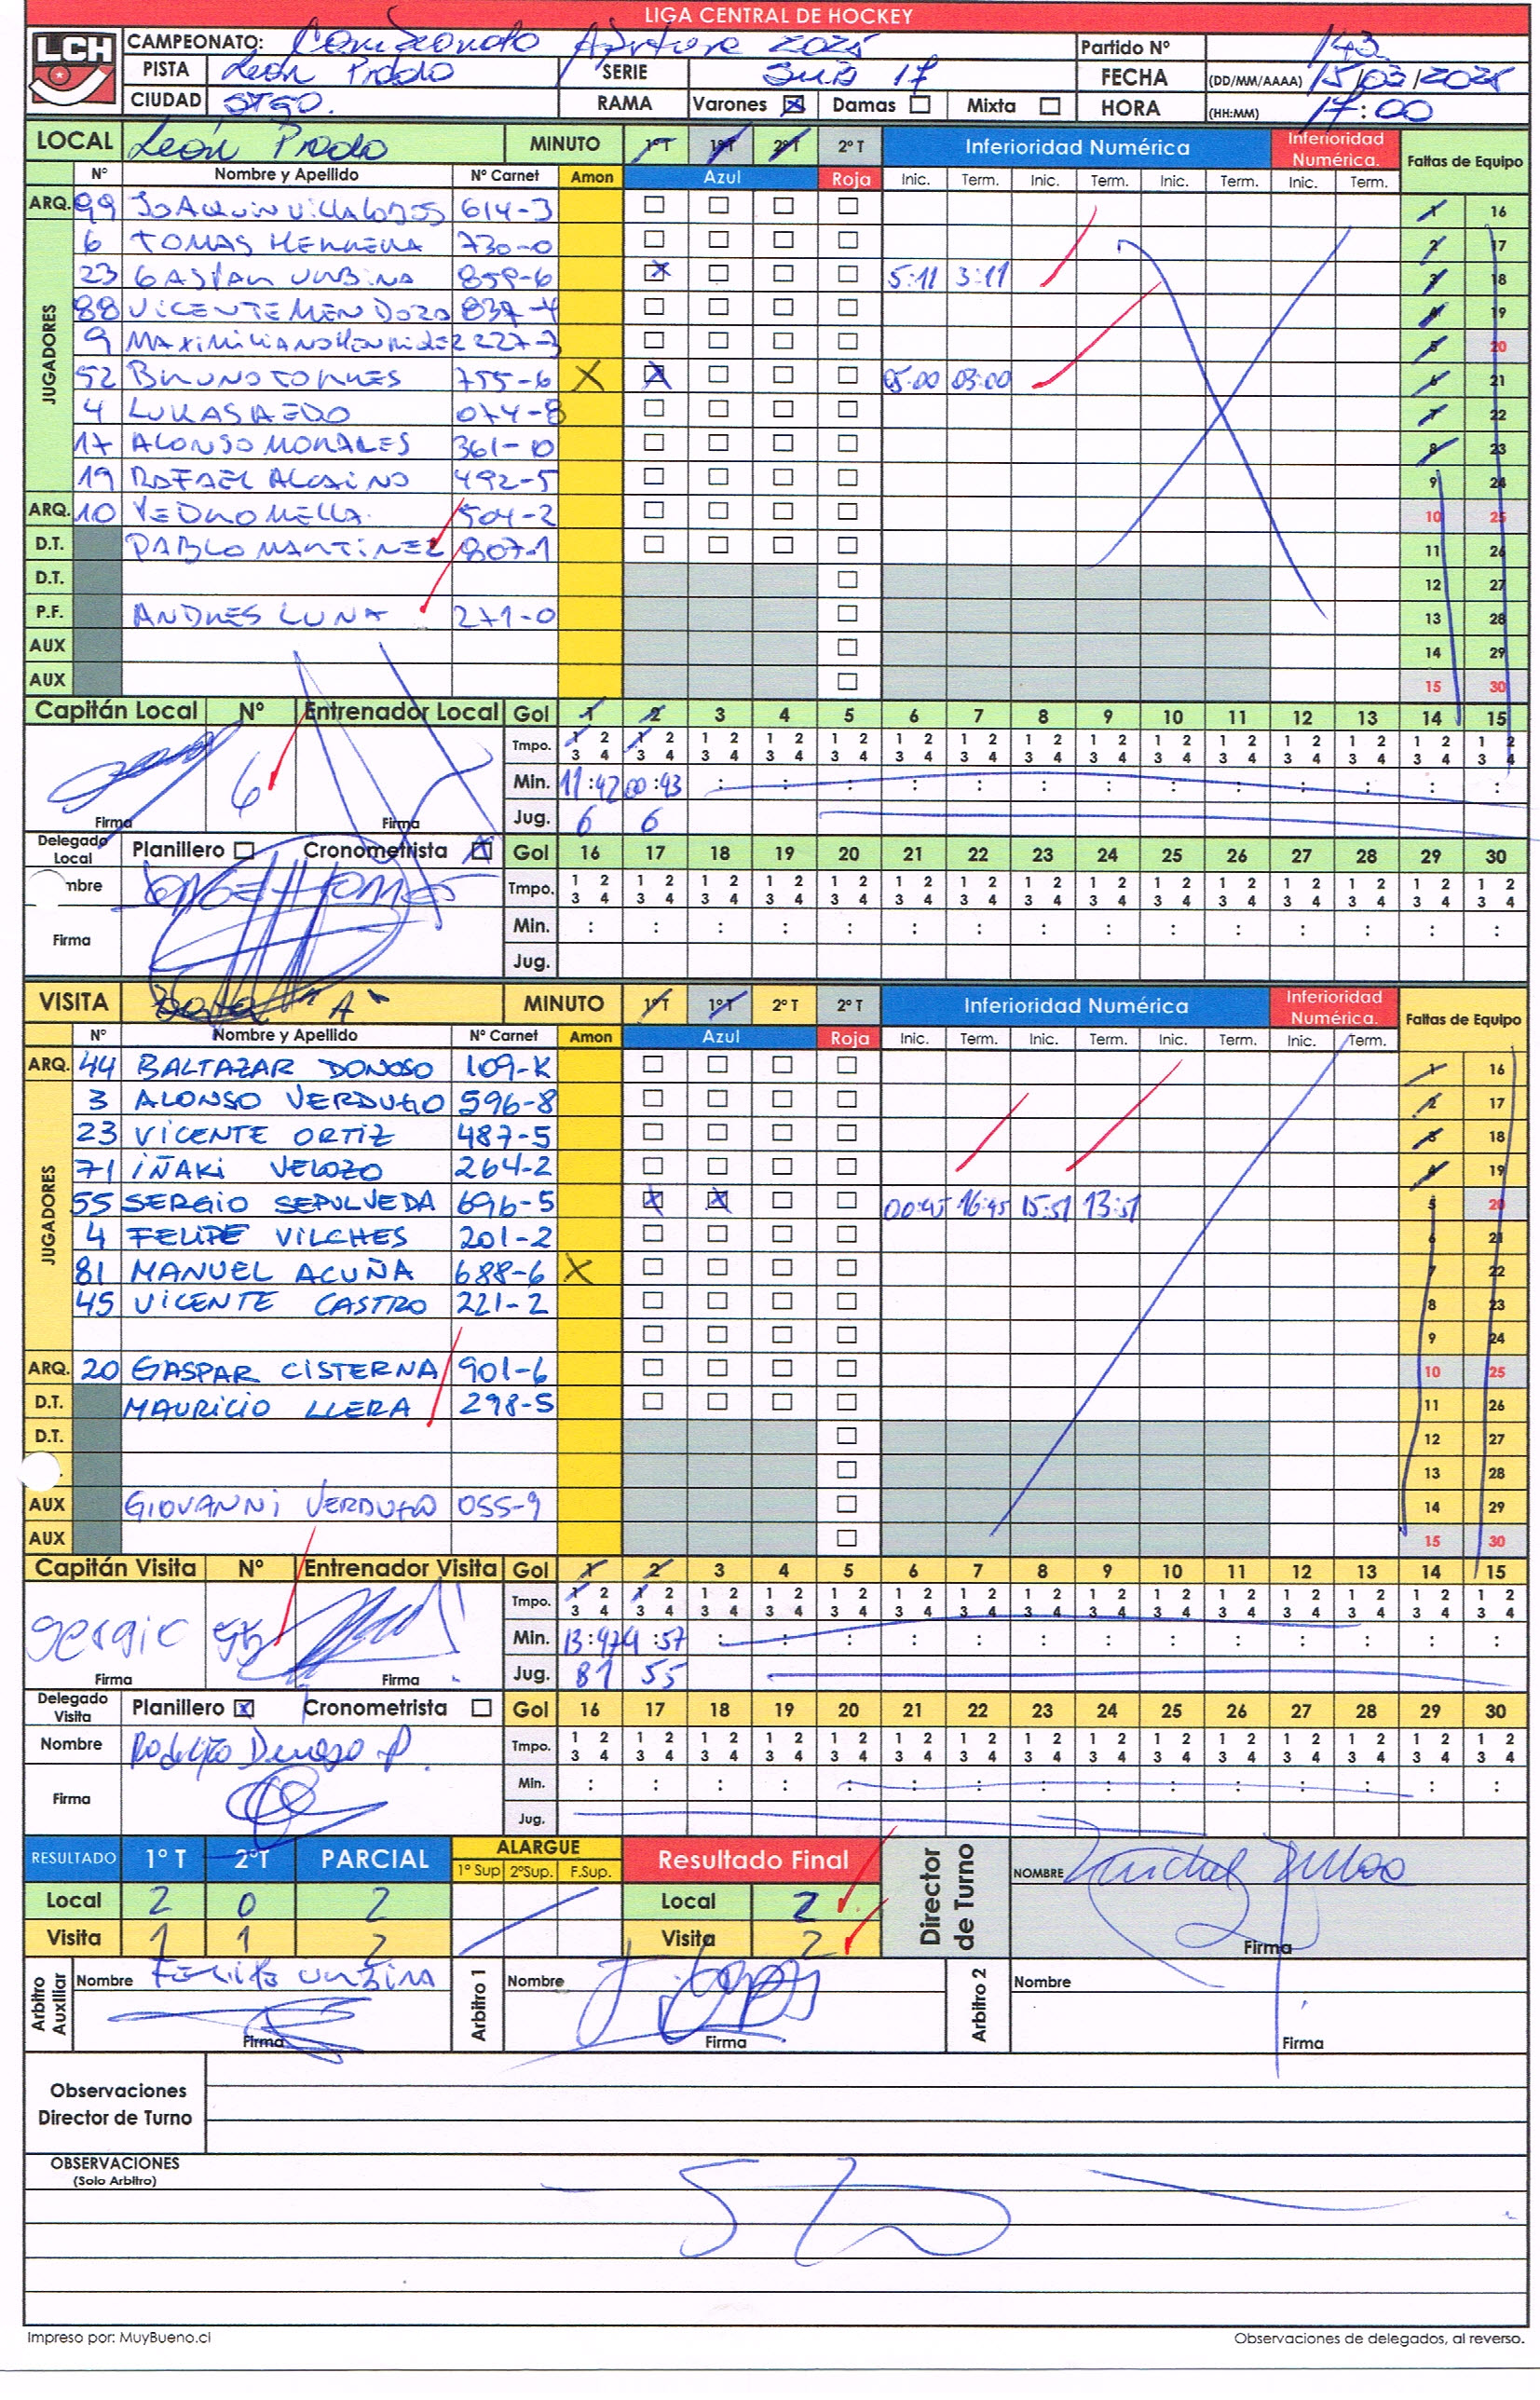 LIGA CENTRAL DE HOCKEY
LCH
CAMPEONATO: Campeonato Apertura 2025 Partido Nº 143
PISTA León Prado SERIE SUB 17 FECHA (DD/MM/AAAA) 15/03/2025
CIUDAD STGO. RAMA Varones Damas Mixta HORA (HH:MM) 17:00
LOCAL León Prado MINUTO 1ºT 1ºT 2ºT 2ºT Inferioridad Numérica Inferioridad Numérica. Faltas de Equipo
Nº Nombre y Apellido Nº Carnet Amon Azul Roja Inic. Term. Inic. Term. Inic. Term. Inic. Term.
ARQ. 99 JOAQUIN VILLALOBOS 614-3 1 16
JUGADORES
6 TOMAS HERRERA 730-0 2 17
23 GASPAR URBINA 859-6 X 5:11 3:11 3 18
88 VICENTE MENDOZA 837-4 4 19
9 MAXIMILIANO HENRIQUEZ 227-3 5 20
52 BRUNO TORRES 755-6 X X 05:00 03:00 6 21
4 LUKAS AEDO 074-8 7 22
17 ALONSO MORALES 361-10 8 23
19 RAFAEL ALCAINO 492-5 9 24
ARQ. 10 PEDRO MELLA 504-2 10 25
D.T. PABLO MARTINEZ 807-1 11 26
D.T. 12 27
P.F. ANDRES LUNA 271-0 13 28
AUX 14 29
AUX 15 30
Capitán Local Nº Entrenador Local Gol 1 2 3 4 5 6 7 8 9 10 11 12 13 14 15
Tmpo. 1 2 3 4 1 2 3 4 1 2 3 4 1 2 3 4 1 2 3 4 1 2 3 4 1 2 3 4 1 2 3 4 1 2 3 4 1 2 3 4 1 2 3 4 1 2 3 4 1 2 3 4 1 2 3 4 1 2 3 4
6 Min. 11:42 00:43 : : : : : : : : : : : : :
Firma Firma Jug. 6 6
Delegado Local Planillero Cronometrista Gol 16 17 18 19 20 21 22 23 24 25 26 27 28 29 30
mbre Tmpo. 1 2 3 4 1 2 3 4 1 2 3 4 1 2 3 4 1 2 3 4 1 2 3 4 1 2 3 4 1 2 3 4 1 2 3 4 1 2 3 4 1 2 3 4 1 2 3 4 1 2 3 4 1 2 3 4 1 2 3 4
Firma Min. : : : : : : : : : : : : : : :
Jug.
VISITA "A" MINUTO 1ºT 1ºT 2ºT 2ºT Inferioridad Numérica Inferioridad Numérica. Faltas de Equipo
Nº Nombre y Apellido Nº Carnet Amon Azul Roja Inic. Term. Inic. Term. Inic. Term. Inic. Term.
ARQ. 44 BALTAZAR DONOSO 109-K 1 16
JUGADORES
3 ALONSO VERDUGO 596-8 2 17
23 VICENTE ORTIZ 487-5 3 18
71 IÑAKI VELOZO 264-2 4 19
55 SERGIO SEPULVEDA 696-5 X X 00:45 16:45 15:51 13:51 5 20
4 FELIPE VILCHES 201-2 6 21
81 MANUEL ACUÑA 688-6 X 7 22
45 VICENTE CASTRO 221-2 8 23
9 24
ARQ. 20 GASPAR CISTERNA 901-6 10 25
D.T. MAURICIO LLERA 298-5 11 26
D.T. 12 27
13 28
AUX GIOVANNI VERDUGO 055-9 14 29
AUX 15 30
Capitán Visita Nº Entrenador Visita Gol 1 2 3 4 5 6 7 8 9 10 11 12 13 14 15
Tmpo. 1 2 3 4 1 2 3 4 1 2 3 4 1 2 3 4 1 2 3 4 1 2 3 4 1 2 3 4 1 2 3 4 1 2 3 4 1 2 3 4 1 2 3 4 1 2 3 4 1 2 3 4 1 2 3 4 1 2 3 4
Sergio 55 Min. :57 : : : : : : : : : : : : :
Firma Firma Jug. 81 55
Delegado Visita Planillero X Cronometrista Gol 16 17 18 19 20 21 22 23 24 25 26 27 28 29 30
Nombre Rodrigo Donoso P. Tmpo. 1 2 3 4 1 2 3 4 1 2 3 4 1 2 3 4 1 2 3 4 1 2 3 4 1 2 3 4 1 2 3 4 1 2 3 4 1 2 3 4 1 2 3 4 1 2 3 4 1 2 3 4 1 2 3 4 1 2 3 4
Firma Min. : : : : : : : : : : : : : : :
Jug.
RESULTADO 1º T 2ºT PARCIAL ALARGUE 1º Sup 2ºSup. F.Sup. Resultado Final Director de Turno NOMBRE
Local 2 0 2 Local 2
Visita 1 1 2 Visita 2 Firma
Arbitro Auxiliar Nombre Felipe Urbina Arbitro 1 Nombre Arbitro 2 Nombre
Firma Firma Firma
Observaciones
Director de Turno
OBSERVACIONES
(Solo Arbitro)
Impreso por: MuyBueno.cl Observaciones de delegados, al reverso.